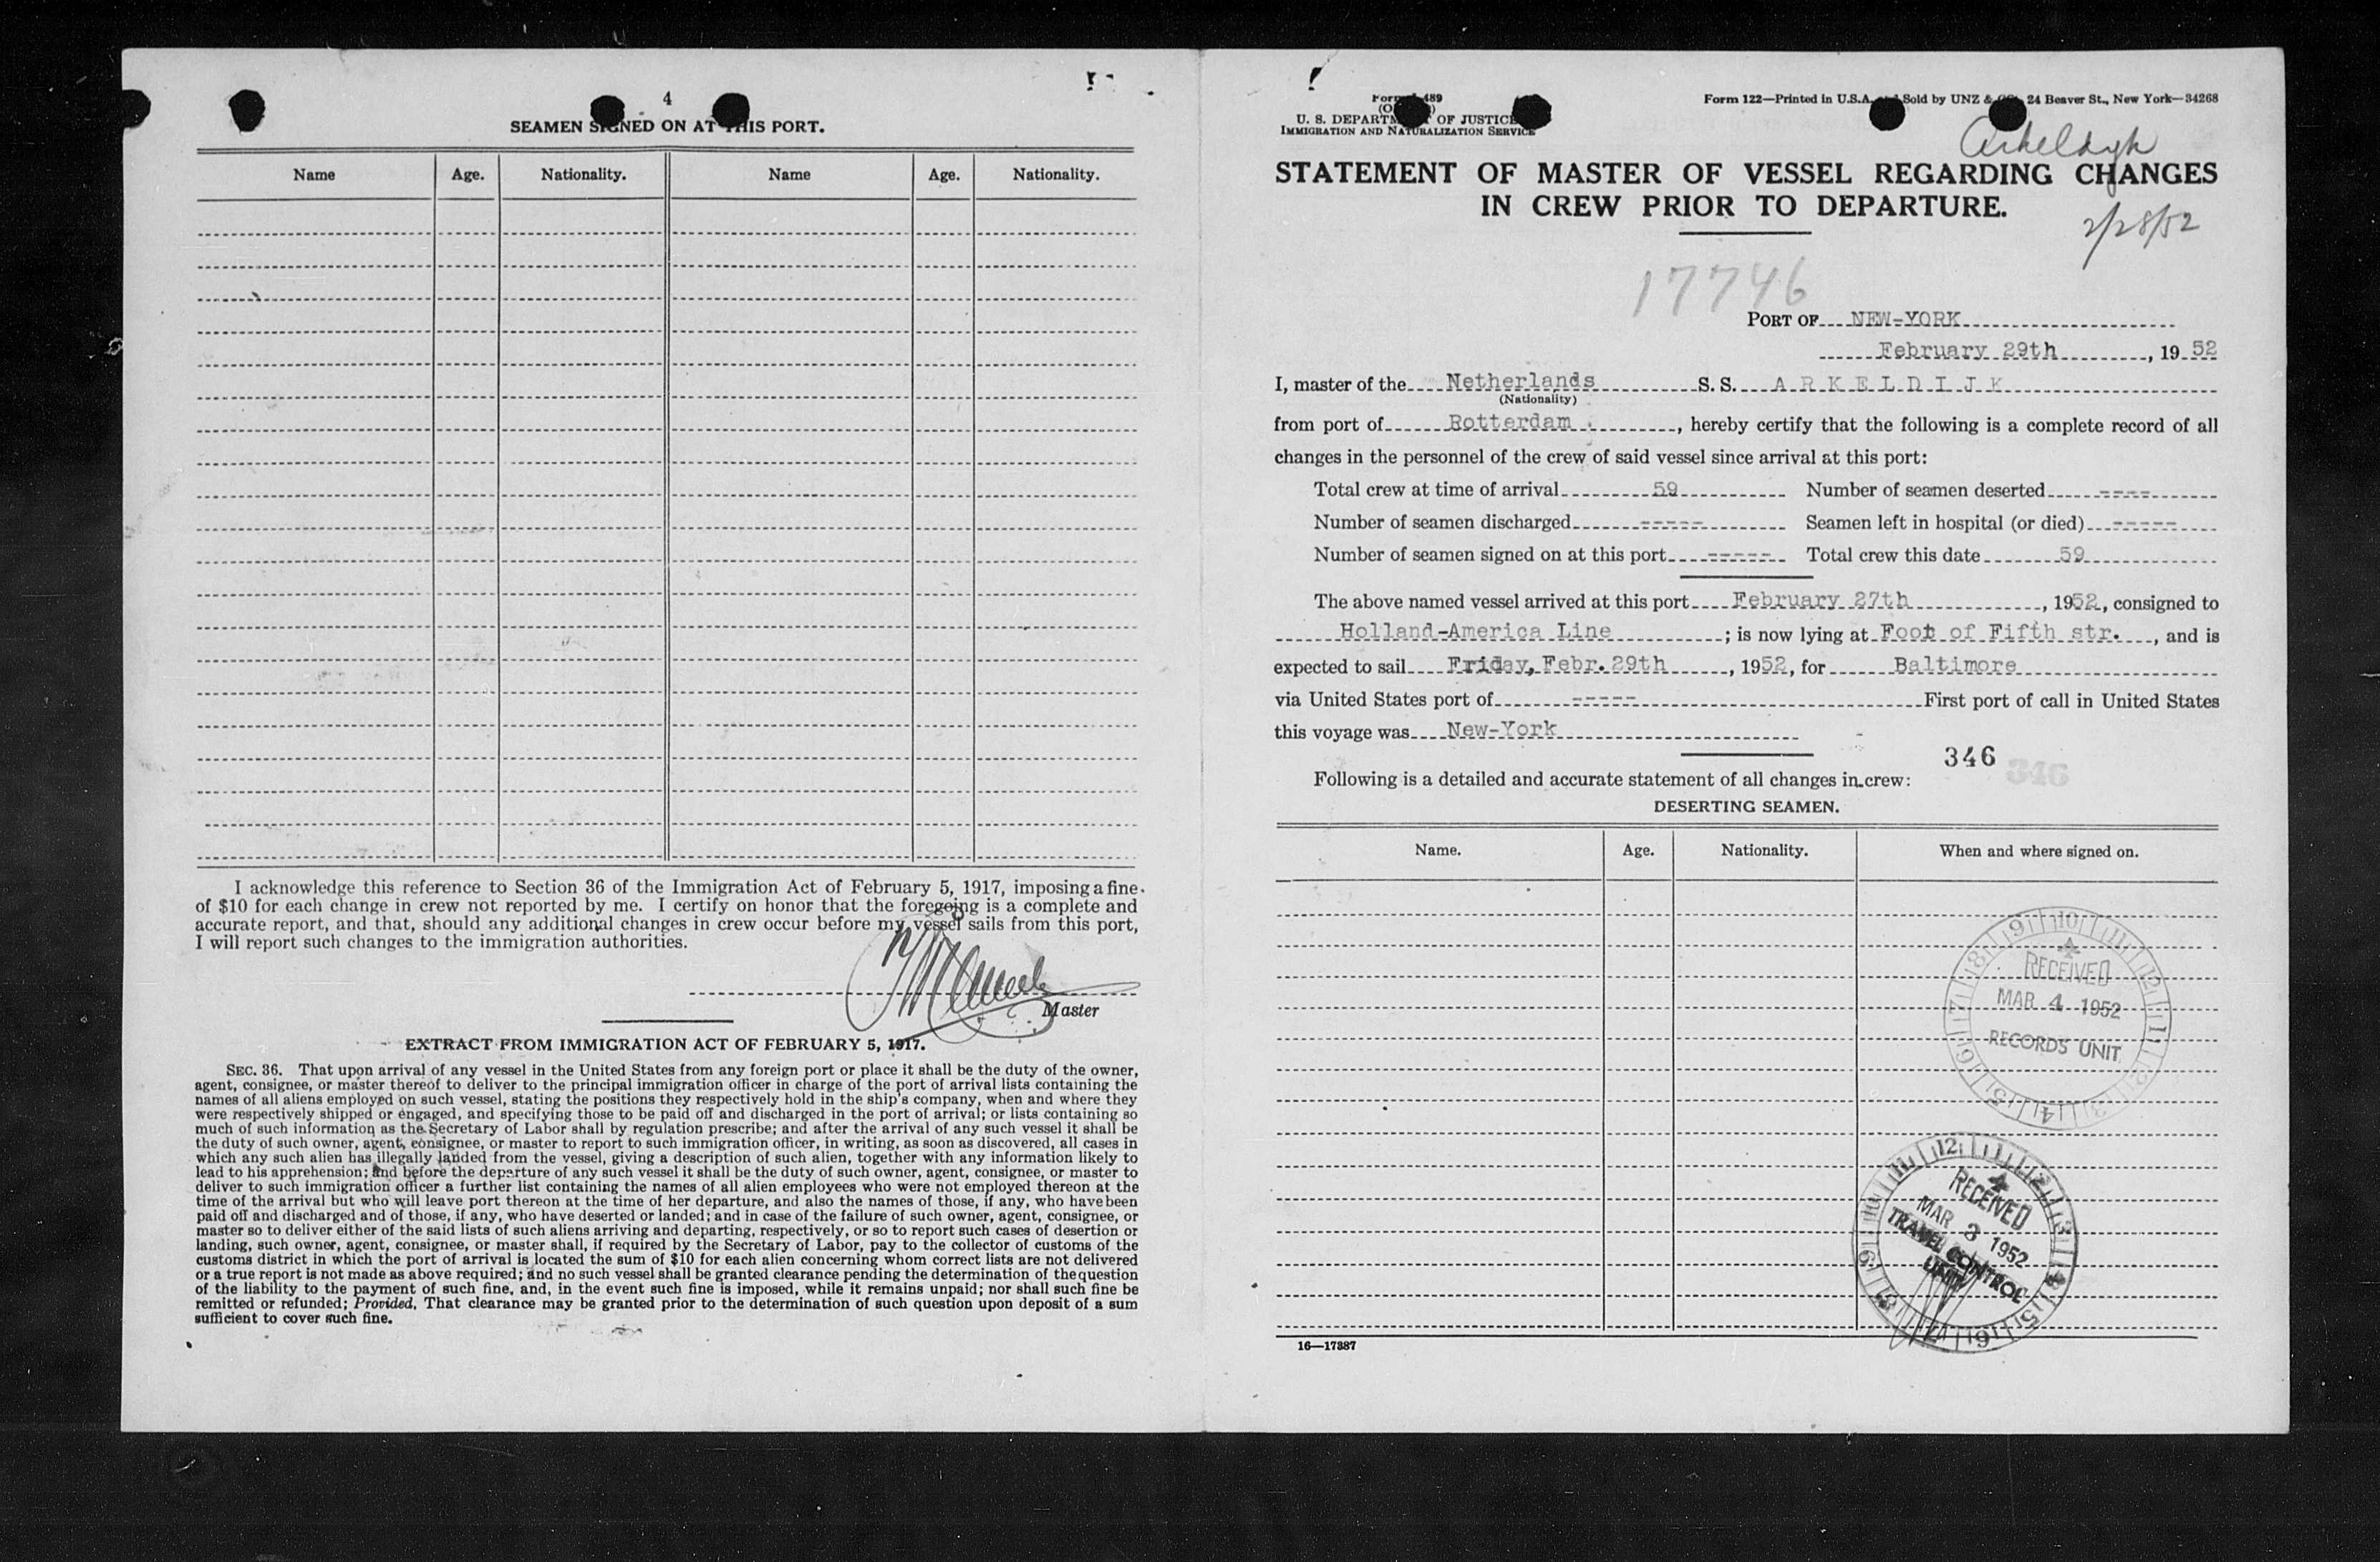 4
SEAMEN SIGNED ON AT THIS PORT.
Name Age. Nationality. Name Age. Nationality.
I acknowledge this reference to Section 36 of the Immigration Act of February 5, 1917, imposing a fine
of $10 for each change in crew not reported by me. I certify on honor that the foregoing is a complete and
accurate report, and that, should any additional changes in crew occur before my vessel sails from this port,
I will report such changes to the immigration authorities.
Master
EXTRACT FROM IMMIGRATION ACT OF FEBRUARY 5, 1917.
SEC. 36. That upon arrival of any vessel in the United States from any foreign port or place it shall be the duty of the owner,
agent, consignee, or master thereof to deliver to the principal immigration officer in charge of the port of arrival lists containing the
names of all aliens employed on such vessel, stating the positions they respectively hold in the ship's company, when and where they
were respectively shipped or engaged, and specifying those to be paid off and discharged in the port of arrival; or lists containing so
much of such information as the Secretary of Labor shall by regulation prescribe; and after the arrival of any such vessel it shall be
the duty of such owner, agent, consignee, or master to report to such immigration officer, in writing, as soon as discovered, all cases in
which any such alien has illegally landed from the vessel, giving a description of such alien, together with any information likely to
lead to his apprehension; and before the departure of any such vessel it shall be the duty of such owner, agent, consignee, or master to
deliver to such immigration officer a further list containing the names of all alien employees who were not employed thereon at the
time of the arrival but who will leave port thereon at the time of her departure, and also the names of those, if any, who have been
paid off and discharged and of those, if any, who have deserted or landed; and in case of the failure of such owner, agent, consignee, or
master so to deliver either of the said lists of such aliens arriving and departing, respectively, or so to report such cases of desertion or
landing, such owner, agent, consignee, or master shall, if required by the Secretary of Labor, pay to the collector of customs of the
customs district in which the port of arrival is located the sum of $10 for each alien concerning whom correct lists are not delivered
or a true report is not made as above required; and no such vessel shall be granted clearance pending the determination of the question
of the liability to the payment of such fine, and, in the event such fine is imposed, while it remains unpaid; nor shall such fine be
remitted or refunded; Provided, That clearance may be granted prior to the determination of such question upon deposit of a sum
sufficient to cover such fine.
Form 489
U. S. DEPARTMENT OF JUSTICE
IMMIGRATION AND NATURALIZATION SERVICE
Form 122—Printed in U.S.A. and Sold by UNZ & CO., 24 Beaver St., New York—34268
Arkeldyk
STATEMENT OF MASTER OF VESSEL REGARDING CHANGES
IN CREW PRIOR TO DEPARTURE.
2/28/52
17746
PORT OF NEW-YORK
February 29th, 1952
I, master of the Netherlands S. S. A R K E L D I J K
(Nationality)
from port of Rotterdam, hereby certify that the following is a complete record of all
changes in the personnel of the crew of said vessel since arrival at this port:
Total crew at time of arrival 59 Number of seamen deserted ----
Number of seamen discharged ----- Seamen left in hospital (or died) -----
Number of seamen signed on at this port ----- Total crew this date 59
The above named vessel arrived at this port February 27th, 1952, consigned to
Holland-America Line; is now lying at Foot of Fifth str., and is
expected to sail Friday, Febr. 29th, 1952, for Baltimore
via United States port of ----- First port of call in United States
this voyage was New-York
346 346
Following is a detailed and accurate statement of all changes in crew:
DESERTING SEAMEN.
Name. Age. Nationality. When and where signed on.
RECEIVED
MAR 4 1952
RECORDS UNIT
RECEIVED
MAR 3 1952
TRAVEL CONTROL
UNIT
16—17387